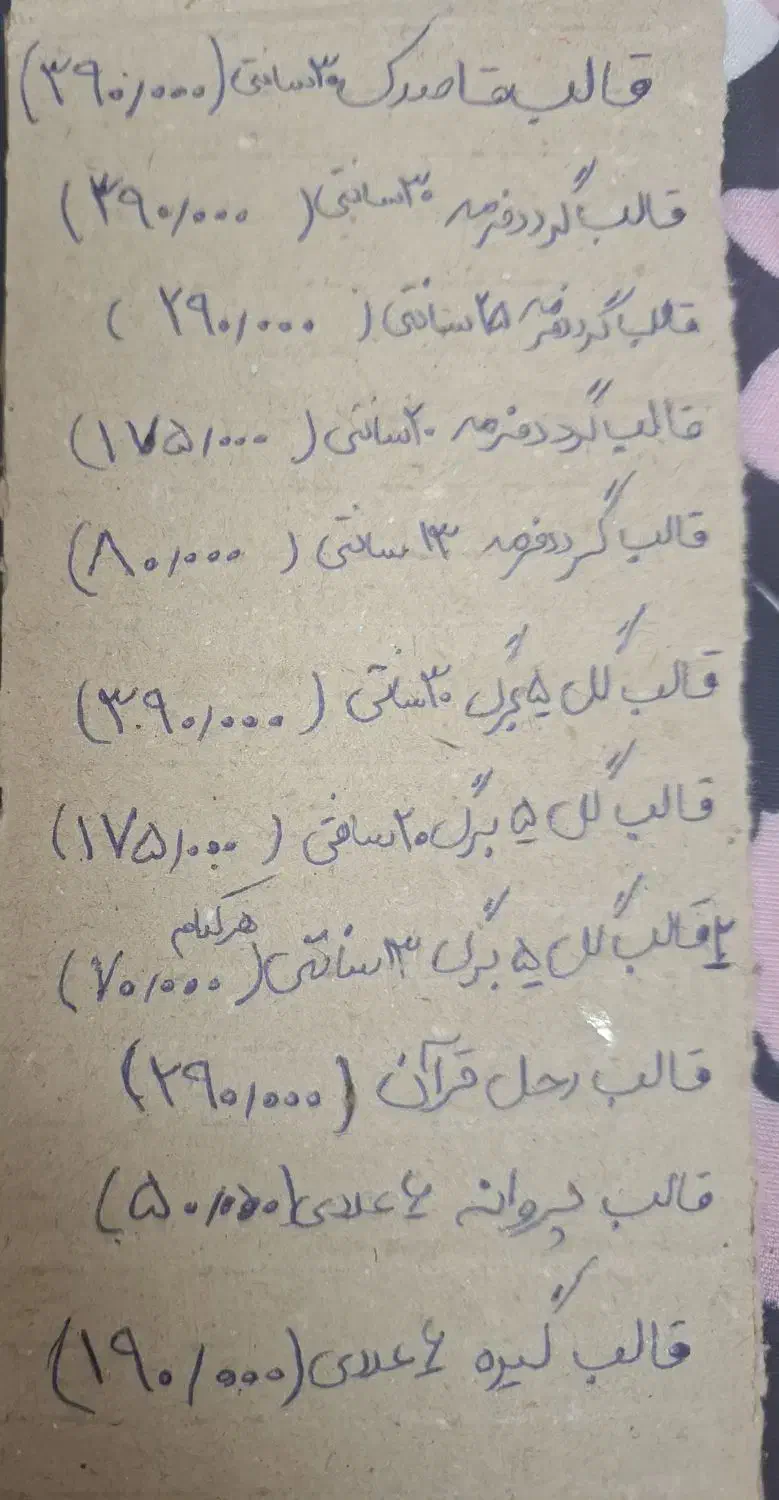 قالب قاصدک ۳۰سانتی (۳۹۰/۰۰۰)
قالب گرد دفرمه ۳۰سانتی (۳۹۰/۰۰۰)
قالب گرد دفرمه ۲۵ سانتی (۲۹۰/۰۰۰)
قالب گرد دفرمه ۲۰سانتی (۱۷۵/۰۰۰)
قالب گرد دفرمه ۱۳ سانتی (۸۰/۰۰۰)
قالب گل ۵ برگ ۳۰سانتی (۳۹۰/۰۰۰)
قالب گل ۵ برگ ۲۰سانتی (۱۷۵/۰۰۰)
۲ قالب گل ۵ برگ ۱۳سانتی (۷۰/۰۰۰) هرکدام
قالب رحل قرآن (۲۹۰/۰۰۰)
قالب پروانه ۶ عددی (۵۰/۰۰۰)
قالب گیره ۶ عددی (۱۹۰/۰۰۰)